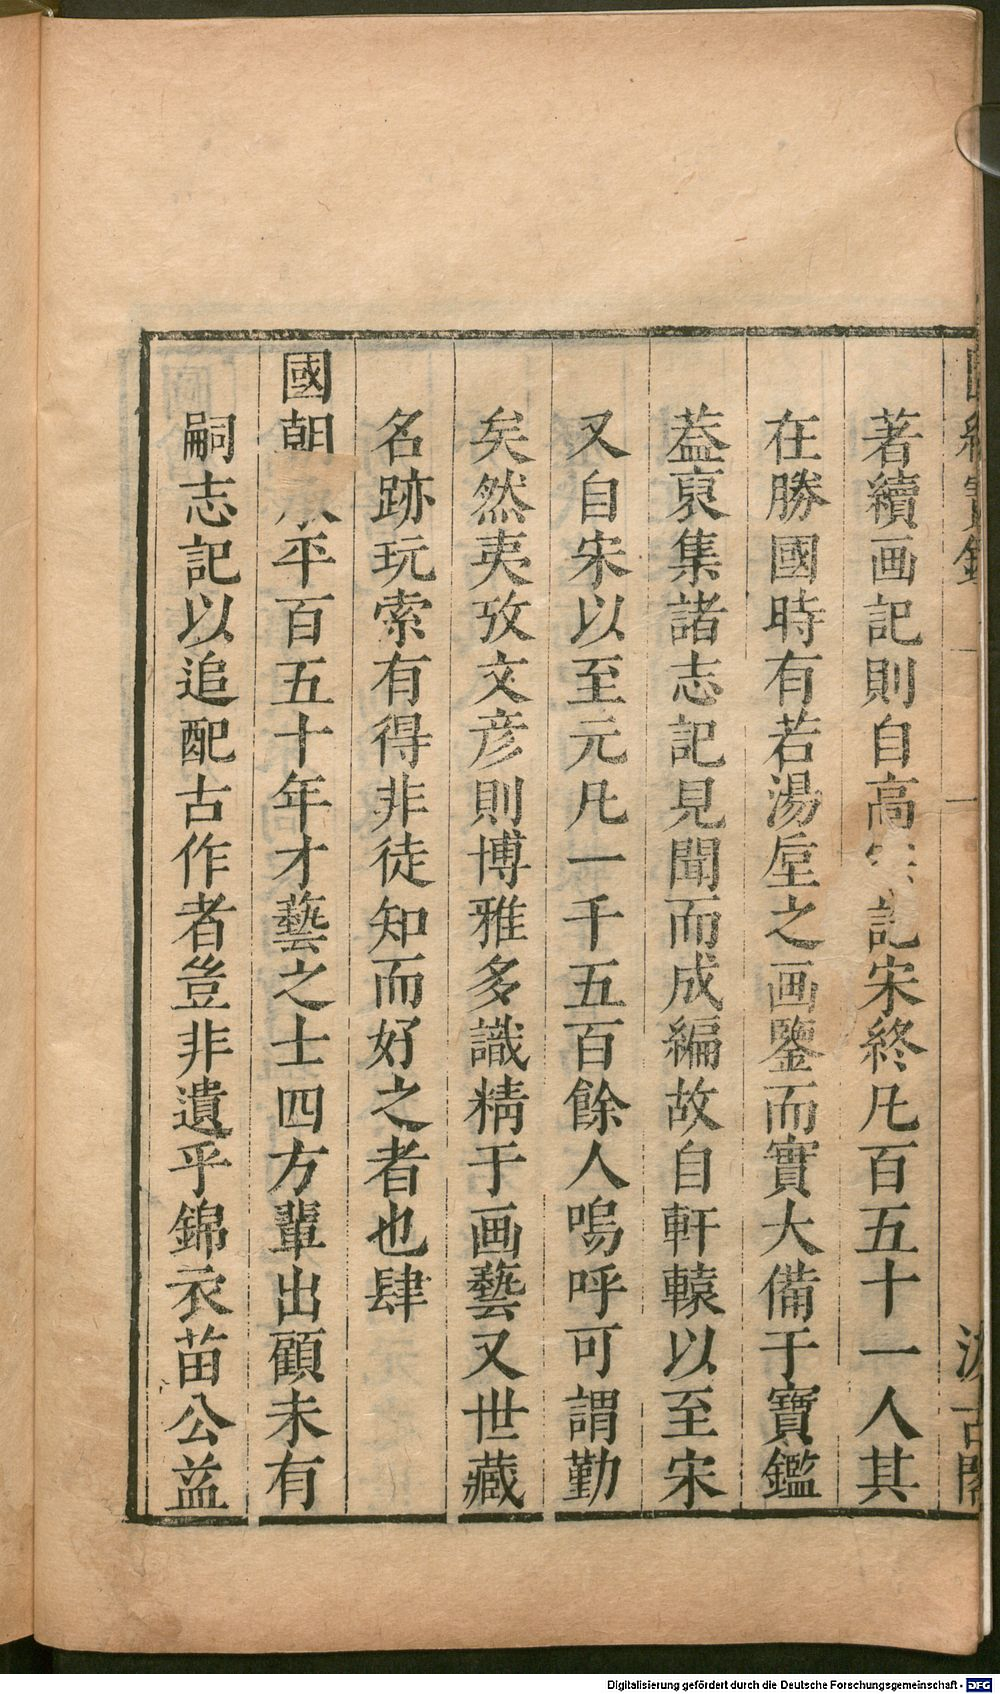 著續画記則自高記宋終凡百五十一人其
在勝國時有若湯垕之画鑒而實大備于寶鑑
葢裒集諸志記見聞而成編故自軒轅以至宋
又自宋以至元凡一千五百餘人嗚呼可謂勤
矣然夷攷文彦則博雅多識精于画藝又世藏
名跡玩索有得非徒知而好之者也肆
國朝平百五十年才藝之士四方輩出顧未有
嗣志記以追配古作者豈非遺乎錦衣苗公益
Digitalisierung gefördert durch die Deutsche Forschungsgemeinschaft - DFG